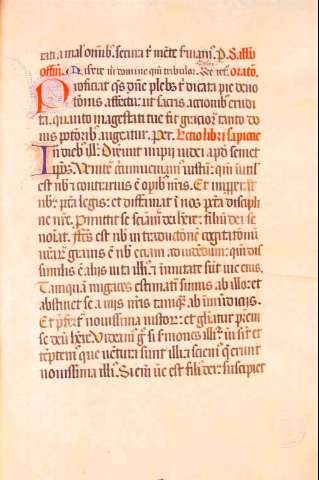 rati. a mal. omīb. secura t̄ mēte ẜuiam᷑. P. Sal᷑
offm̄. Miserē m̄ domine qm̄ tribulor. Orat̄o.
Proficiat q̄s dn̄e plebs t̄ dicata pie deuo
tōnis affectu: ut sacris actionib᷒ erudi
ta. quanto magestati tue fit gracior: tanto do
nis potiorib᷒ augeatur. Per. Lectio libri sapiencie
In dieb᷒ ill᷑. Dixerunt impii iudei apd̄ semet
ip̄os. Venite circumueniam᷒ iustū: qm̄ īutil᷑
est nob᷒ ⁊ contrarius ē opib᷒ nr̄is. Et improp̄at
nob᷒ pctā legis: et diffamat ī nos pctā discipli
ne nr̄e. Promittit se sciam̄ dei hēre: ⁊ filiū dei se
noīat. Factus est nob᷒ in traductōnē cogitatōnū
nr̄ar᷑. grauis ē nob᷒ eciam ad uidendum: qm̄ dis
similis ē aliis uita illi᷒: ⁊ īmutate sūt uie eius.
Tamquā nugaces estimati sumus ab illo: et
abstinet se a uiis nr̄is tamq᷑ ab īmūdiciis.
Et p̄fert nouissima iustor᷑: et gl̄iatur prem̄
se deū hēre. Videam᷒ g̊ si ẜmones illi᷒ ūi sīt: et
tēptem᷒ que uentura sunt illi: ⁊ sciem᷒ q̄ erunt
nouissima illi᷒. Si enī ue᷑ est fili᷒ dei: suscipiet